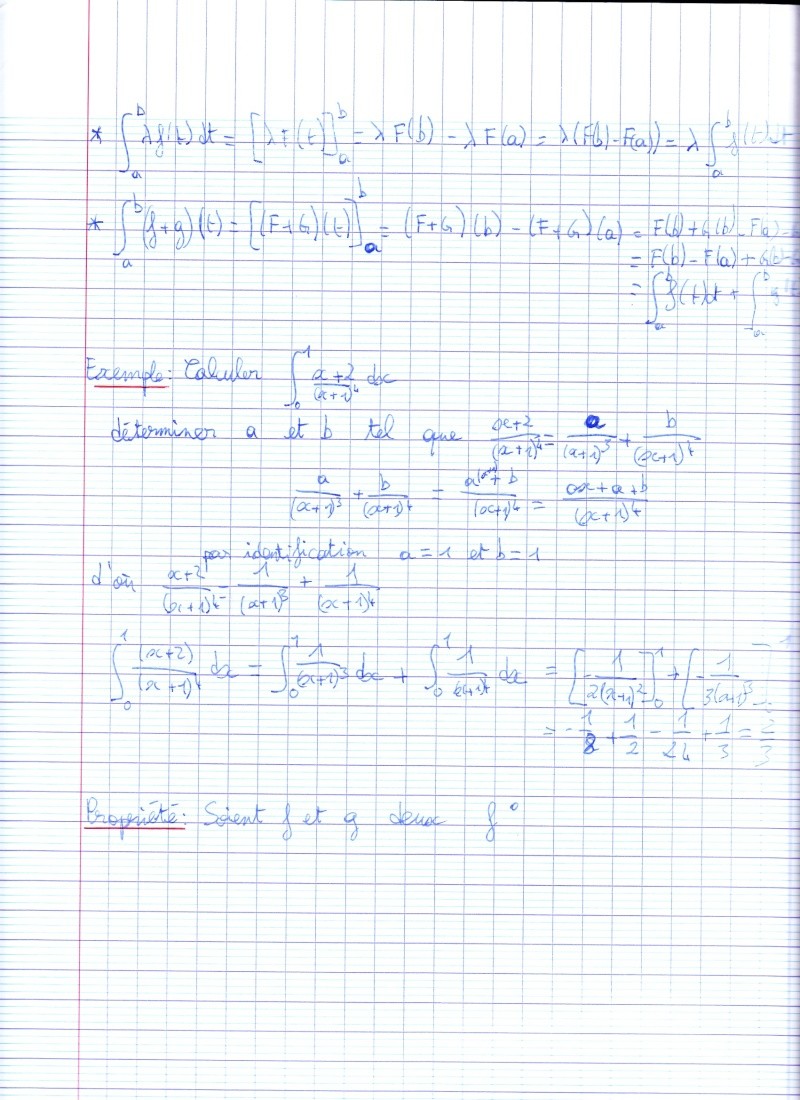 * ∫_a^b λf(t) dt = [λF(t)]_a^b = λF(b) - λF(a) = λ(F(b)-F(a)) = λ ∫_a^b f(t)dt
* ∫_a^b (f+g)(t) = [(F+G)(t)]_a^b = (F+G)(b) - (F+G)(a) = F(b)+G(b)-F(a)-
= F(b)-F(a)+G(b)-
= ∫_a^b f(t)dt + ∫_a^b g
Exemple: Calculer ∫_0^1 (x+2)/(x+1)^4 dx
déterminer a et b tel que (x+2)/(x+1)^4 = a/(x+1)^3 + b/(x+1)^4
a/(x+1)^3 + b/(x+1)^4 = (a(x+1)+b)/(x+1)^4 = (ax+a+b)/(x+1)^4
par identification a=1 et b=1
d'où (x+2)/(x+1)^4 = 1/(x+1)^3 + 1/(x+1)^4
∫_0^1 (x+2)/(x+1)^4 dx = ∫_0^1 1/(x+1)^3 dx + ∫_0^1 1/(x+1)^4 dx = [-1/2(x+1)^2]_0^1 + [-1/3(x+1)^3]
= -1/8 + 1/2 - 1/24 + 1/3 = 2/3
Propriété: Soient f et g deux f°